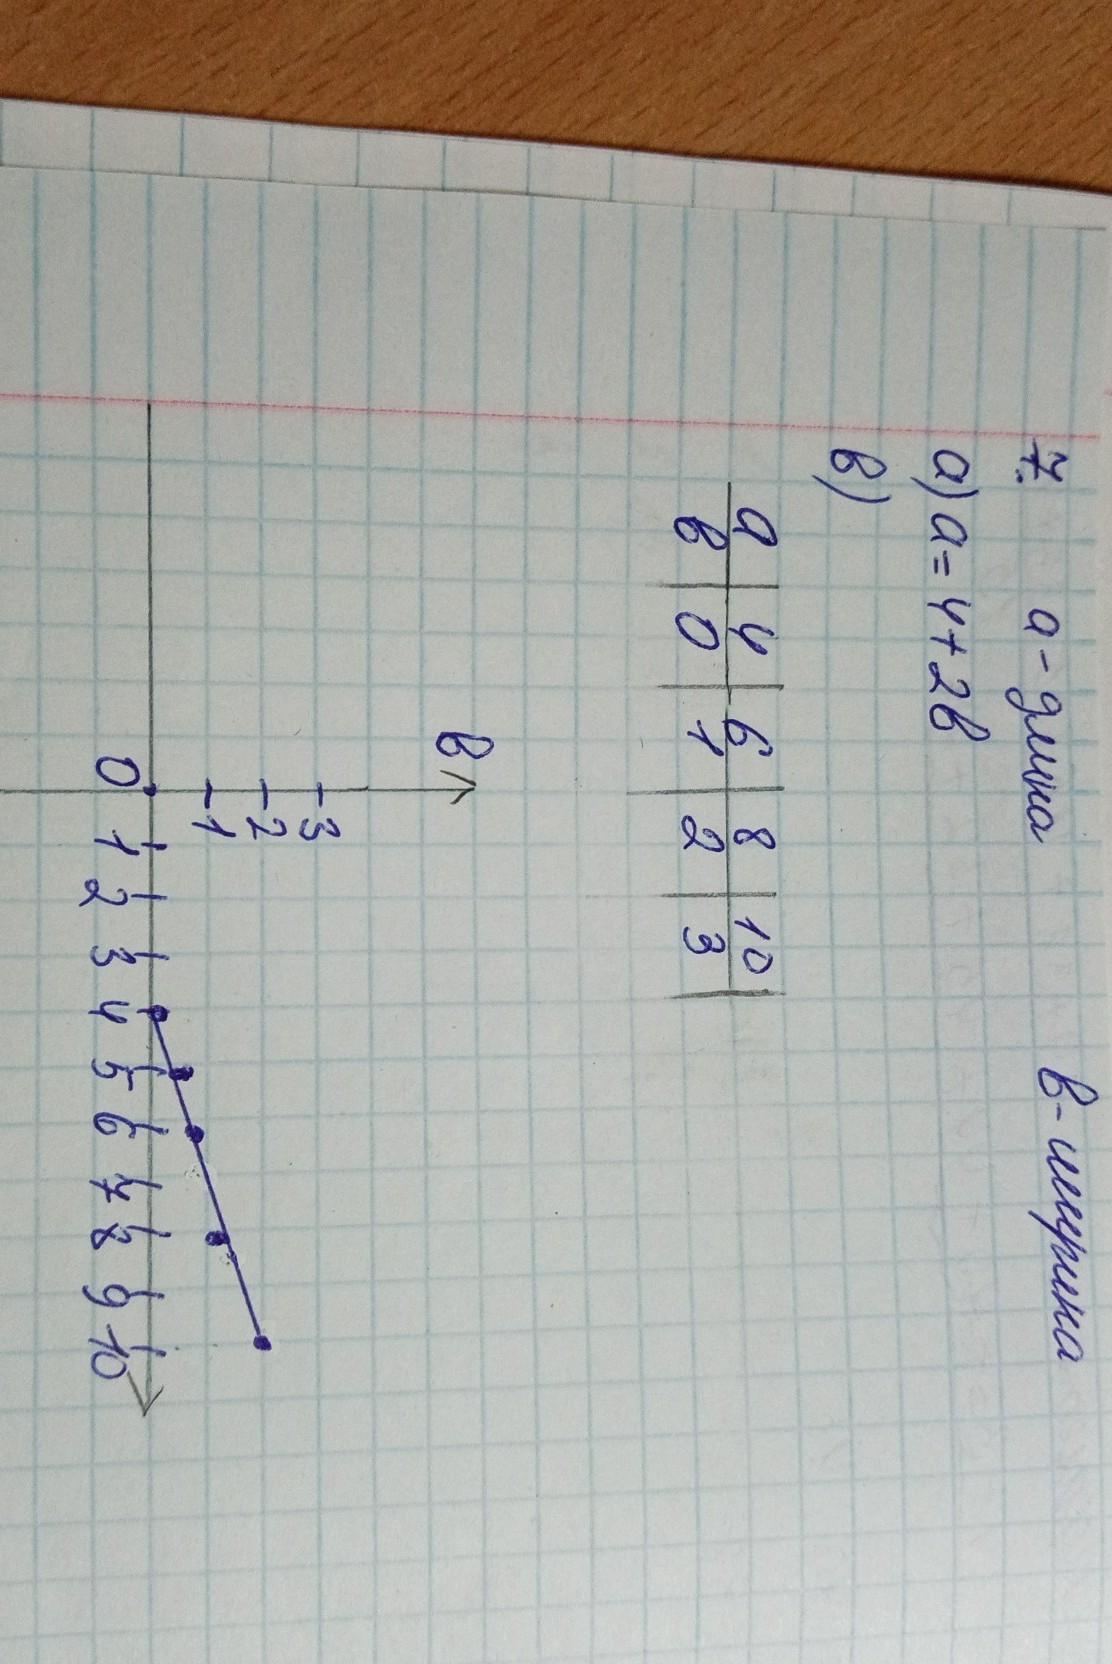 7. а - длина в - ширина
а) а = 4 + 2в
в)
а 4 6 8 10
в 0 1 2 3
в
3
2
1
0 1 2 3 4 5 6 7 8 9 10